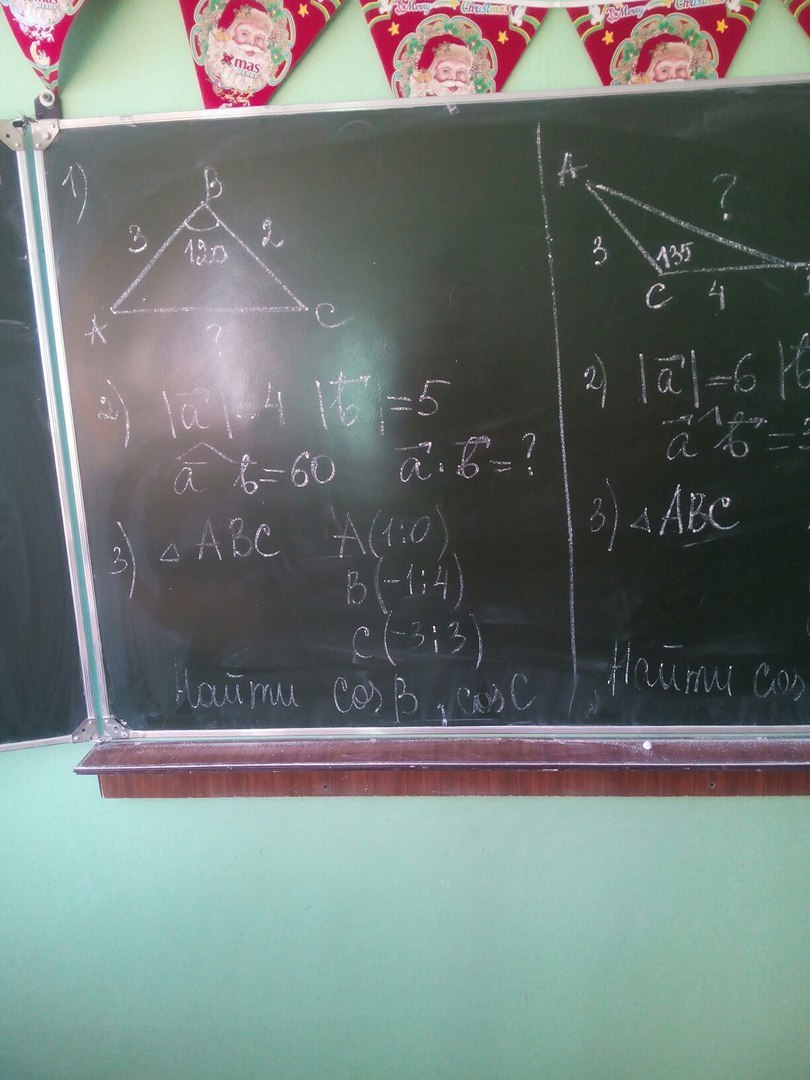 Xmas
Merry Christmas
Merry Christmas
1)
B
3
2
120
A
C
?
2) |a| = 4 |b| = 5
a b = 60 a · b = ?
3) △ ABC A(1;0)
B(-1;4)
C(-3;3)
Найти cos B, cos C
A
?
3
135
C
4
2) |a| = 6
a b =
3) △ ABC
Найти cos